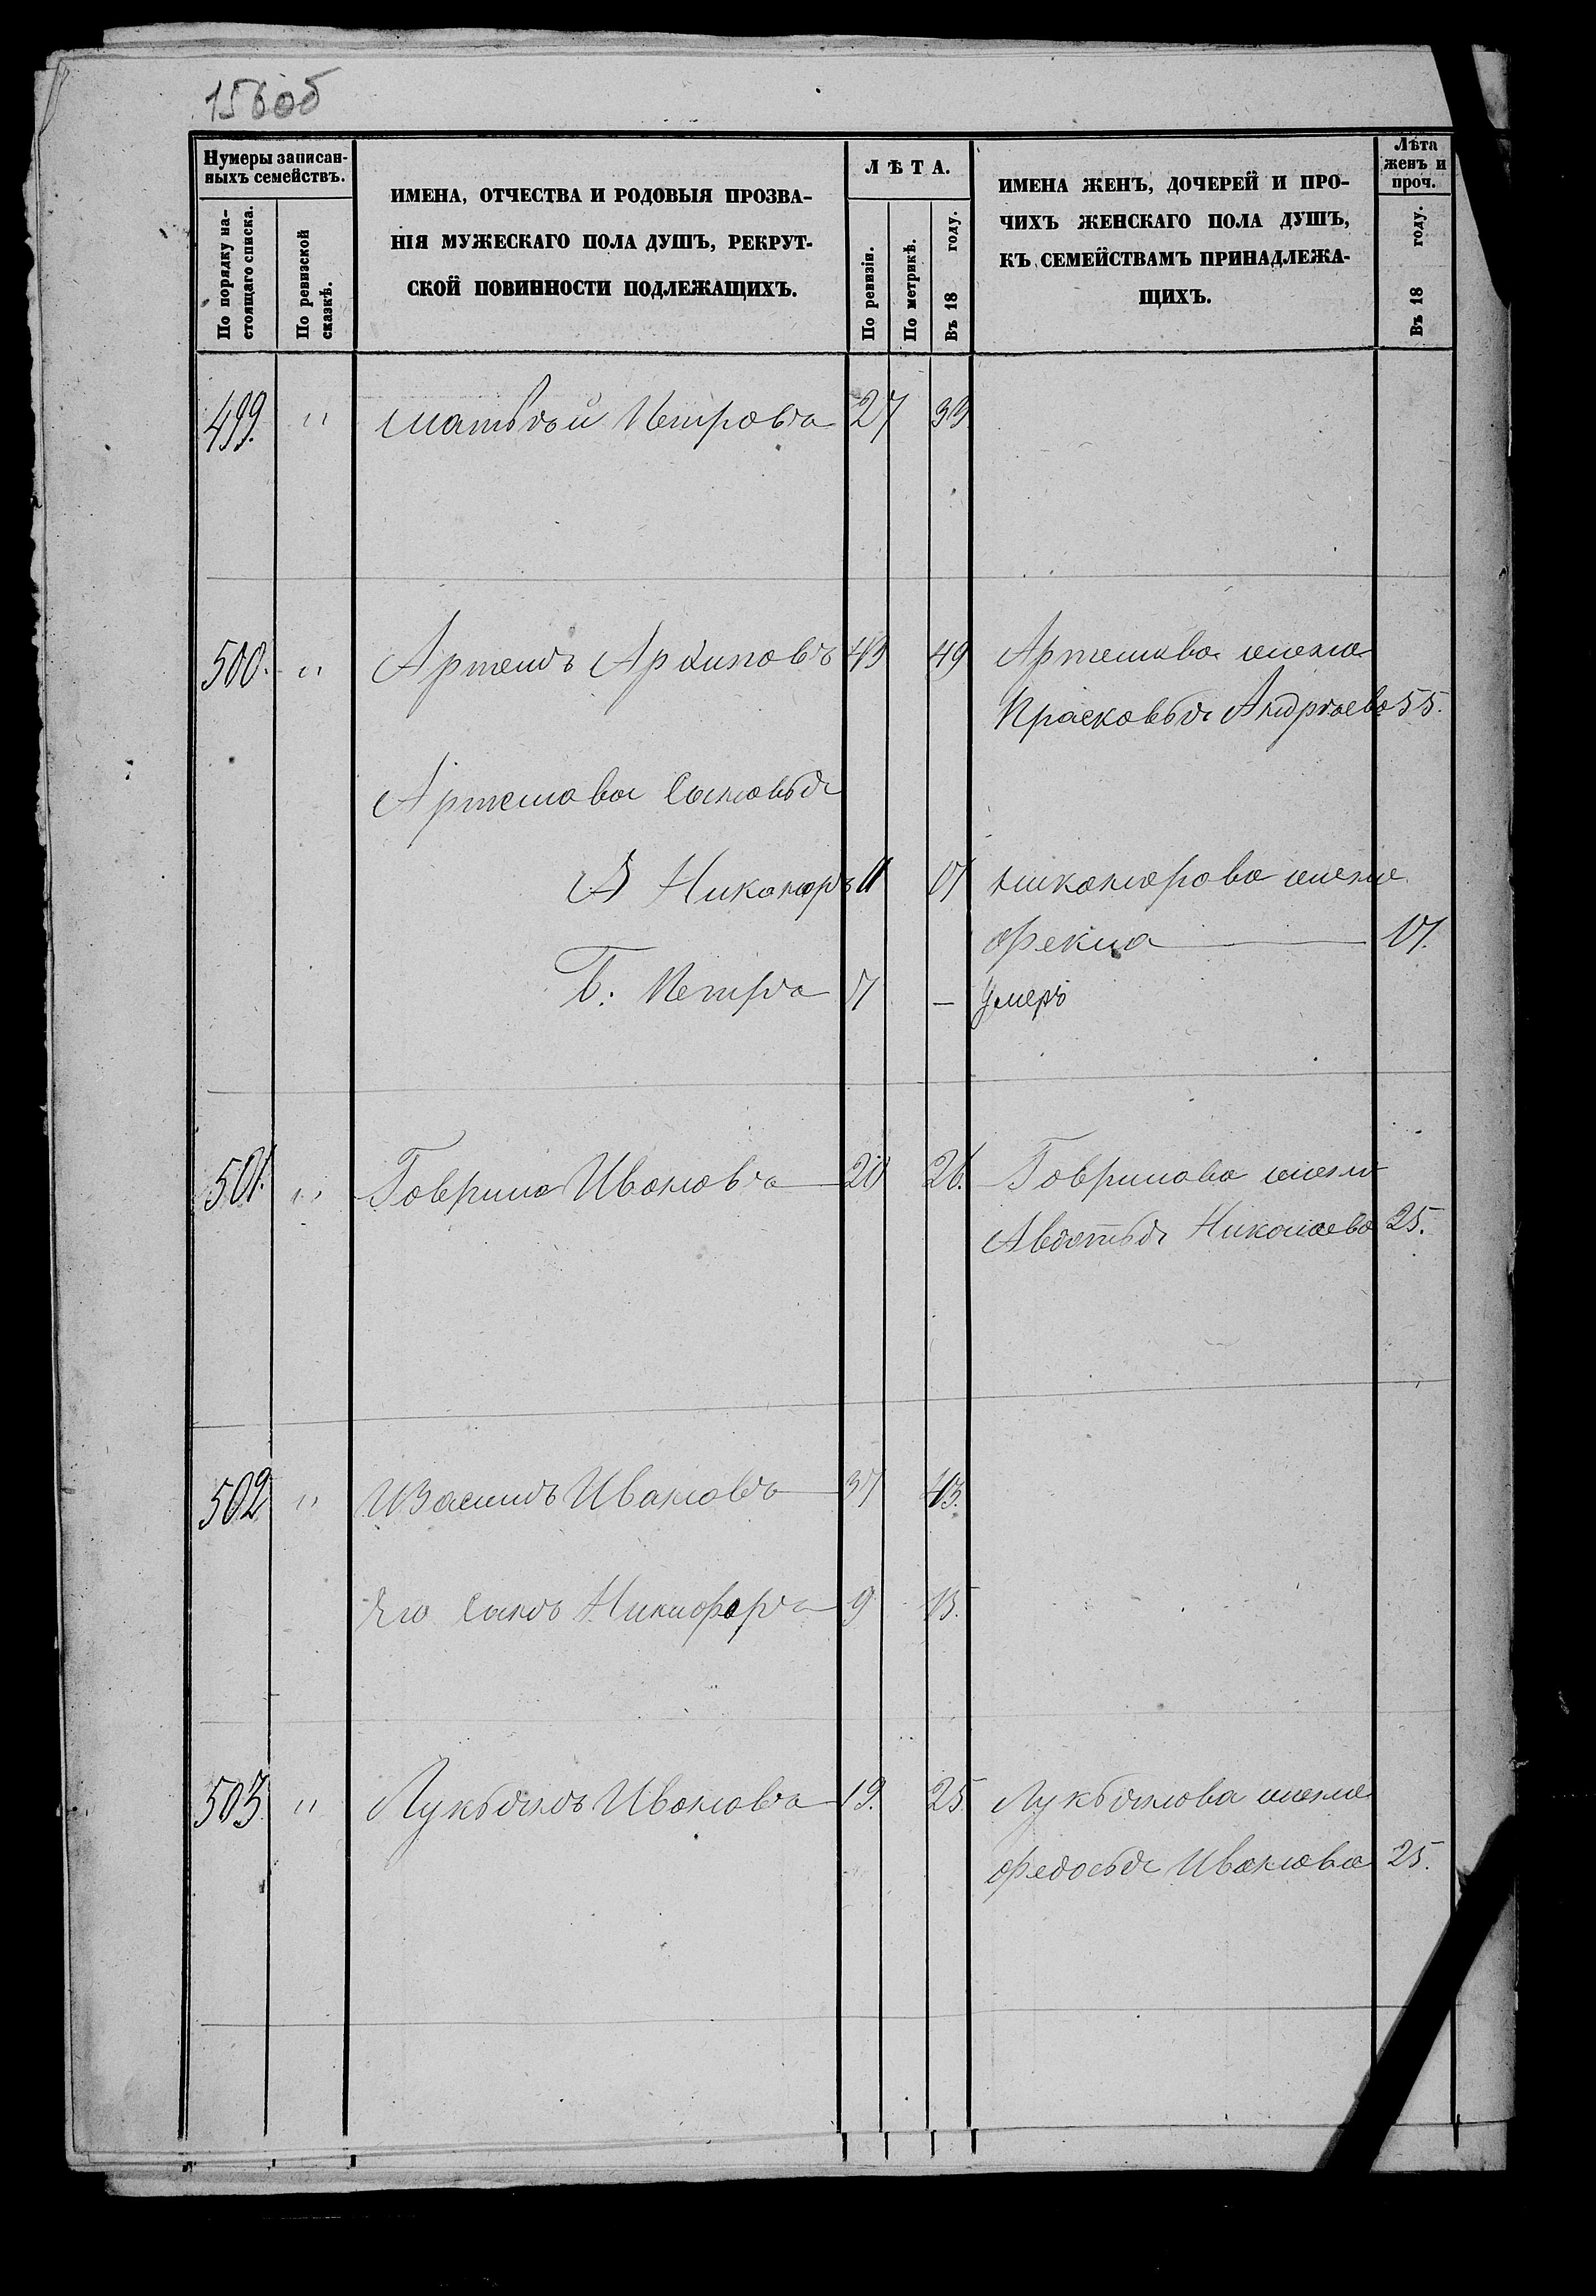 156об
Нумеры записан-
ныхъ семействъ.
По порядку на-
стоящаго списка.
По ревизской
сказкѣ.
ИМЕНА, ОТЧЕСТВА И РОДОВЫЯ ПРОЗВА-
НІЯ МУЖЕСКАГО ПОЛА ДУШЪ, РЕКРУТ-
СКОЙ ПОВИННОСТИ ПОДЛЕЖАЩИХЪ.
ЛѢТА.
По ревизіи.
По метрикѣ.
Въ 18 году.
ИМЕНА ЖЕНЪ, ДОЧЕРЕЙ И ПРО-
ЧИХЪ ЖЕНСКАГО ПОЛА ДУШЪ,
КЪ СЕМЕЙСТВАМЪ ПРИНАДЛЕЖА-
ЩИХЪ.
Лѣта
женъ и
проч.
Въ 18 году.
499. " Матвѣй Петровъ 27 33
500. " Артемъ Архиповъ 43 49 Артемова жена
Прасковья Андрѣева 55.
Артемова Сыновья
А Никаноръ 11 17 Никанорова жена
Фекла 17.
Б. Петръ 7 — Умеръ
501. " Гаврила Ивановъ 20 26. Гаврилова жена
Авдотья Николаева 25.
502 " Ивановъ 37 43.
Его Сынъ Никифоръ 9 15.
503. " Лукьянъ Ивановъ 19. 25 Лукьянова жена
Федосья Иванова 25.